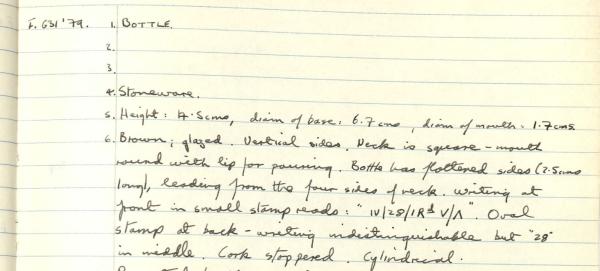 F. 631 '79. 1. BOTTLE.
2.
3.
4. Stoneware.
5. Height: 17.5cms, diam of base: 6.7 cms, diam of mouth: 1.7cms.
6. Brown; glazed. Vertical sides. Neck is square - mouth
round with lip for pouring. Bottle has flattened sides (2.5cms
long), leading from the four sides of neck. Writing at
front in small stamp reads: "IV/28/1Rd V/Λ". Oval
stamp at back - writing indistinguishable but "28"
in middle. Cork stoppered. Cylindrical.